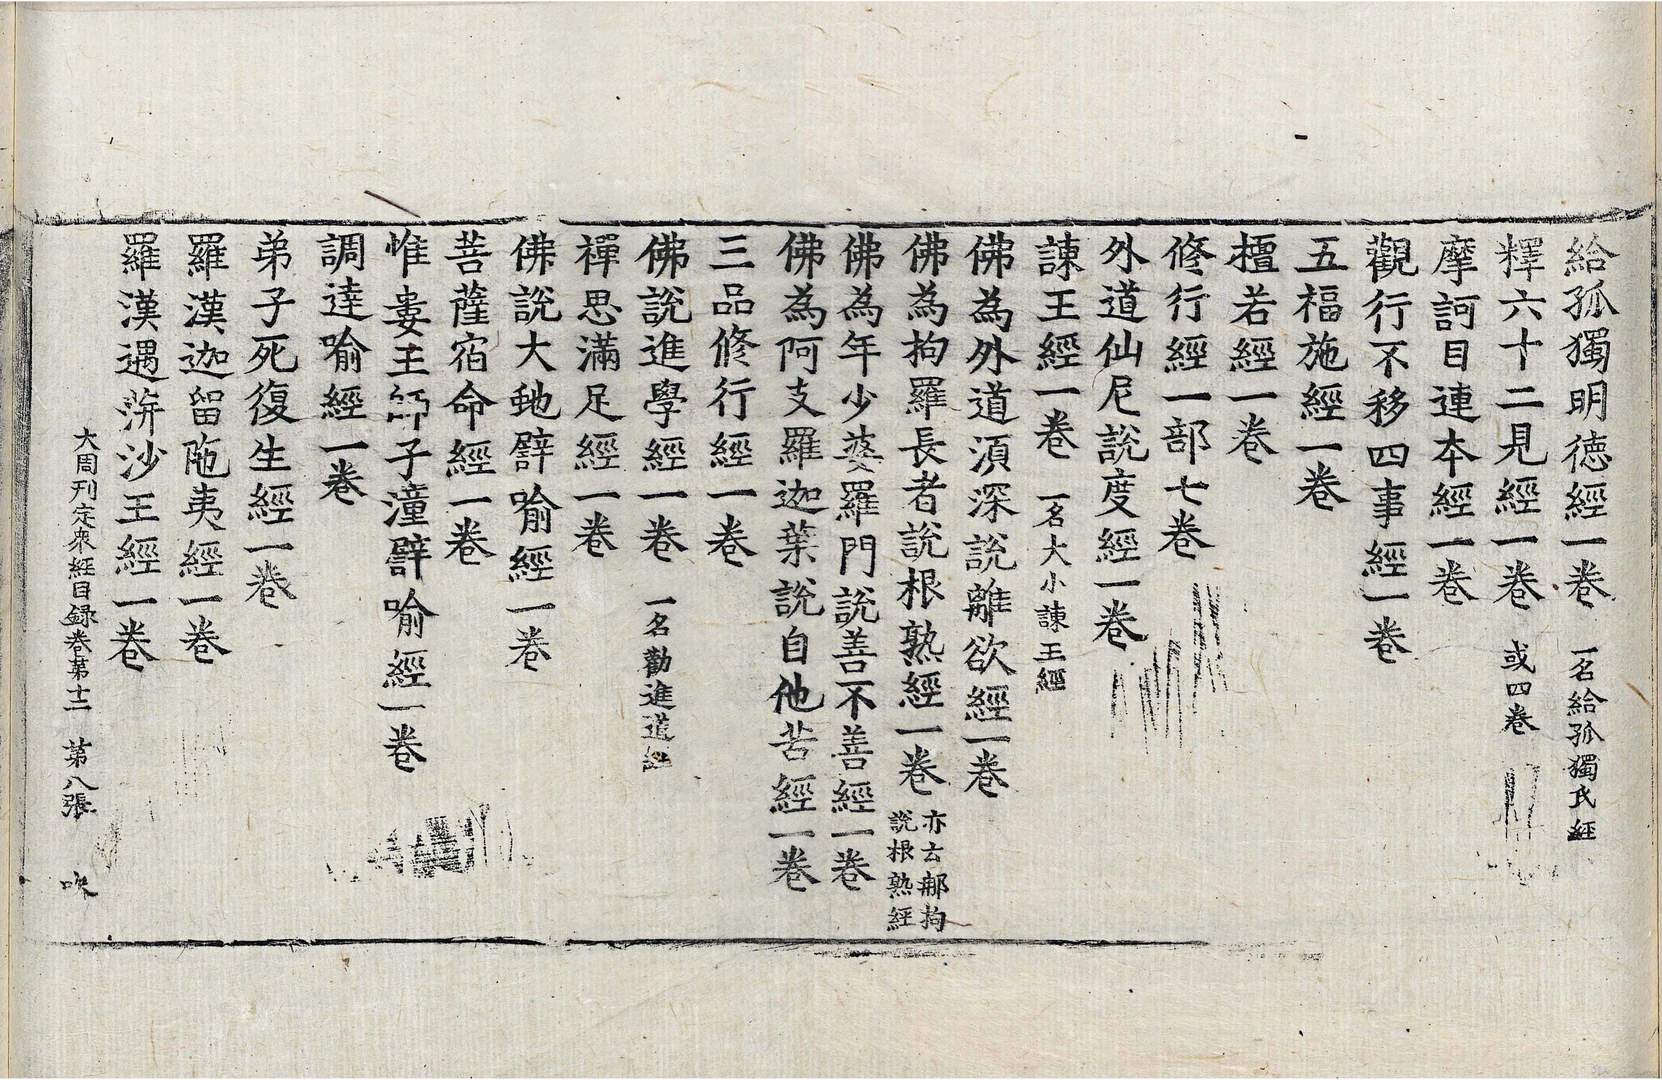 給孤獨明徳經一卷 一名給孤獨氏經
釋六十二見經一卷 或四卷
摩訶目連本經一卷
觀行不移四事經一卷
五福施經一卷
檀若經一卷
修行經一部七卷
外道仙尼說度經一卷
諫王經一卷 一名大小諫王經
佛為外道湏深說離欲經一卷
佛為拘羅長者說根熟經一卷 亦云郍拘說根熟經
佛為年少婆羅門說善不善經一卷
佛為阿支羅迦葉說自他苦經一卷
三品修行經一卷
佛說進學經一卷 一名勸進道經
禪思滿足經一卷
佛說大虵譬喻經一卷
菩薩宿命經一卷
惟婁王師子湩譬喻經一卷
調達喻經一卷
弟子死復生經一卷
羅漢迦留陁夷經一卷
羅漢遇蓱沙王經一卷
大周刊定衆經目録卷第十二 第八張